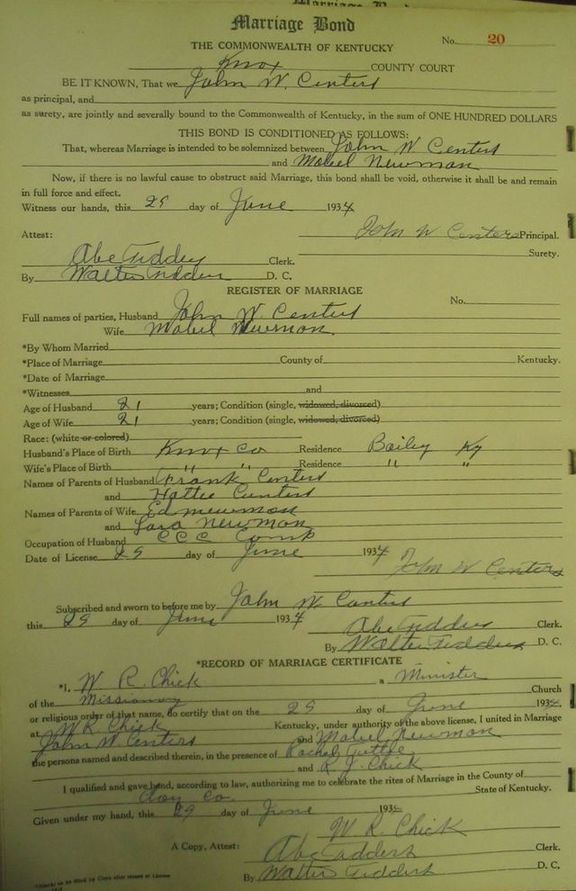 Marriage Bond
THE COMMONWEALTH OF KENTUCKY
No. 20
Knox COUNTY COURT
BE IT KNOWN, That we John W. Centers
as principal, and
as surety, are jointly and severally bound to the Commonwealth of Kentucky, in the sum of ONE HUNDRED DOLLARS
THIS BOND IS CONDITIONED AS FOLLOWS:
That, whereas Marriage is intended to be solemnized between John W Centers
and Mabel Newman
Now, if there is no lawful cause to obstruct said Marriage, this bond shall be void, otherwise it shall be and remain
in full force and effect.
Witness our hands, this 29 day of June 1934
John W Centers Principal.
Attest: Surety.
Abe Clerk.
By Walter D. C.
REGISTER OF MARRIAGE
No.
Full names of parties, Husband John W Centers
Wife Mabel Newman.
*By Whom Married
*Place of Marriage County of Kentucky.
*Date of Marriage
*Witnesses and
Age of Husband 21 years; Condition (single, widowed, divorced)
Age of Wife 21 years; Condition (single, widowed, divorced)
Race: (white or colored)
Husband's Place of Birth Knox Co Residence Bailey Ky
Wife's Place of Birth " " Residence " "
Names of Parents of Husband Frank Centers
and Hattie Centers
Names of Parents of Wife Ed Newman
and Newman
Occupation of Husband CCC Camp
Date of License 29 day of June 1934
John W Centers
Subscribed and sworn to before me by John W Centers
this 29 day of June 1934
Abe Clerk.
By Walter D. C.
*RECORD OF MARRIAGE CERTIFICATE
*I, W. R. Chick a Minister
of the Missionary Church
or religious order of that name, do certify that on the 29 day of June 1934
at W R Chick Kentucky, under authority of the above license, I united in Marriage
John W Centers and Mabel Newman
the persons named and described therein, in the presence of Rachel Tuttle
and R J. Chick
I qualified and gave bond, according to law, authorizing me to celebrate the rites of Marriage in the County of
Clay Co State of Kentucky.
Given under my hand, this 29 day of June 1934
W R Chick
A Copy, Attest: Abe Clerk.
By Walter D. C.